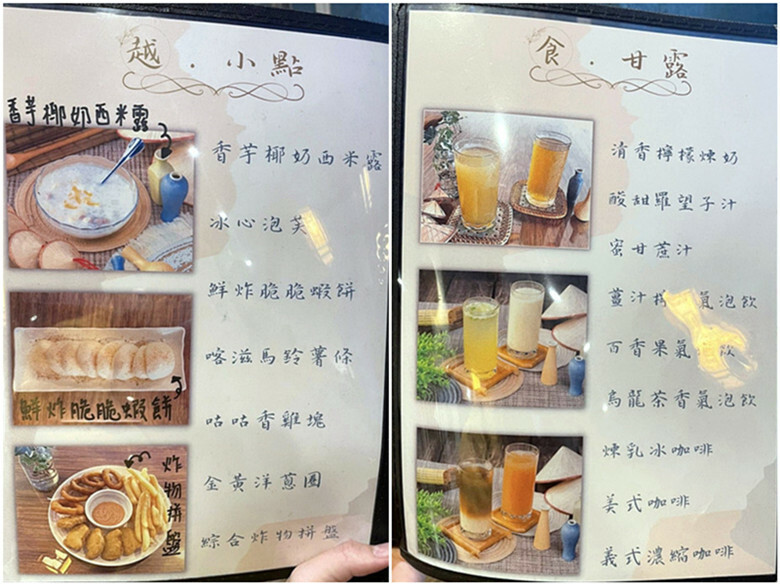 越．小點
香芋椰奶西米露
香芋椰奶西米露
冰心泡芙
鮮炸脆脆蝦餅
喀滋馬鈴薯條
鮮炸脆脆蝦餅
咕咕香雞塊
炸物拼盤
金黃洋蔥圈
綜合炸物拼盤
食．甘露
清香檸檬煉奶
酸甜羅望子汁
蜜甘蔗汁
薑汁檸氣泡飲
百香果氣泡飲
烏龍茶香氣泡飲
煉乳冰咖啡
美式咖啡
義式濃縮咖啡